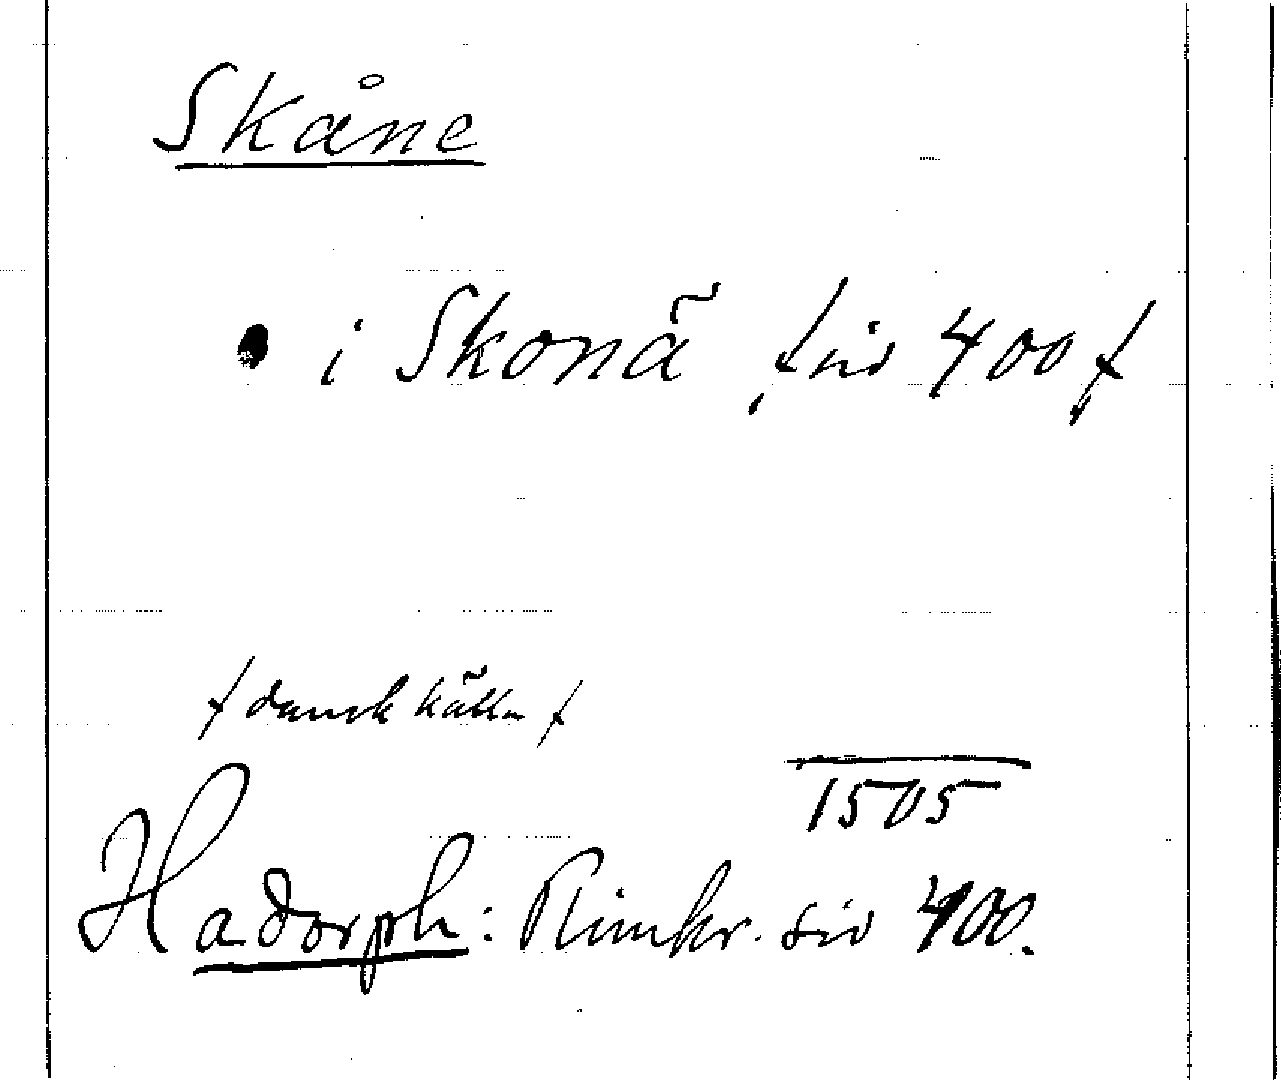 Skåne
i Skonä /sid 400/
/dansk källa/
1505
Hadorph: Rimkr. sid 400.